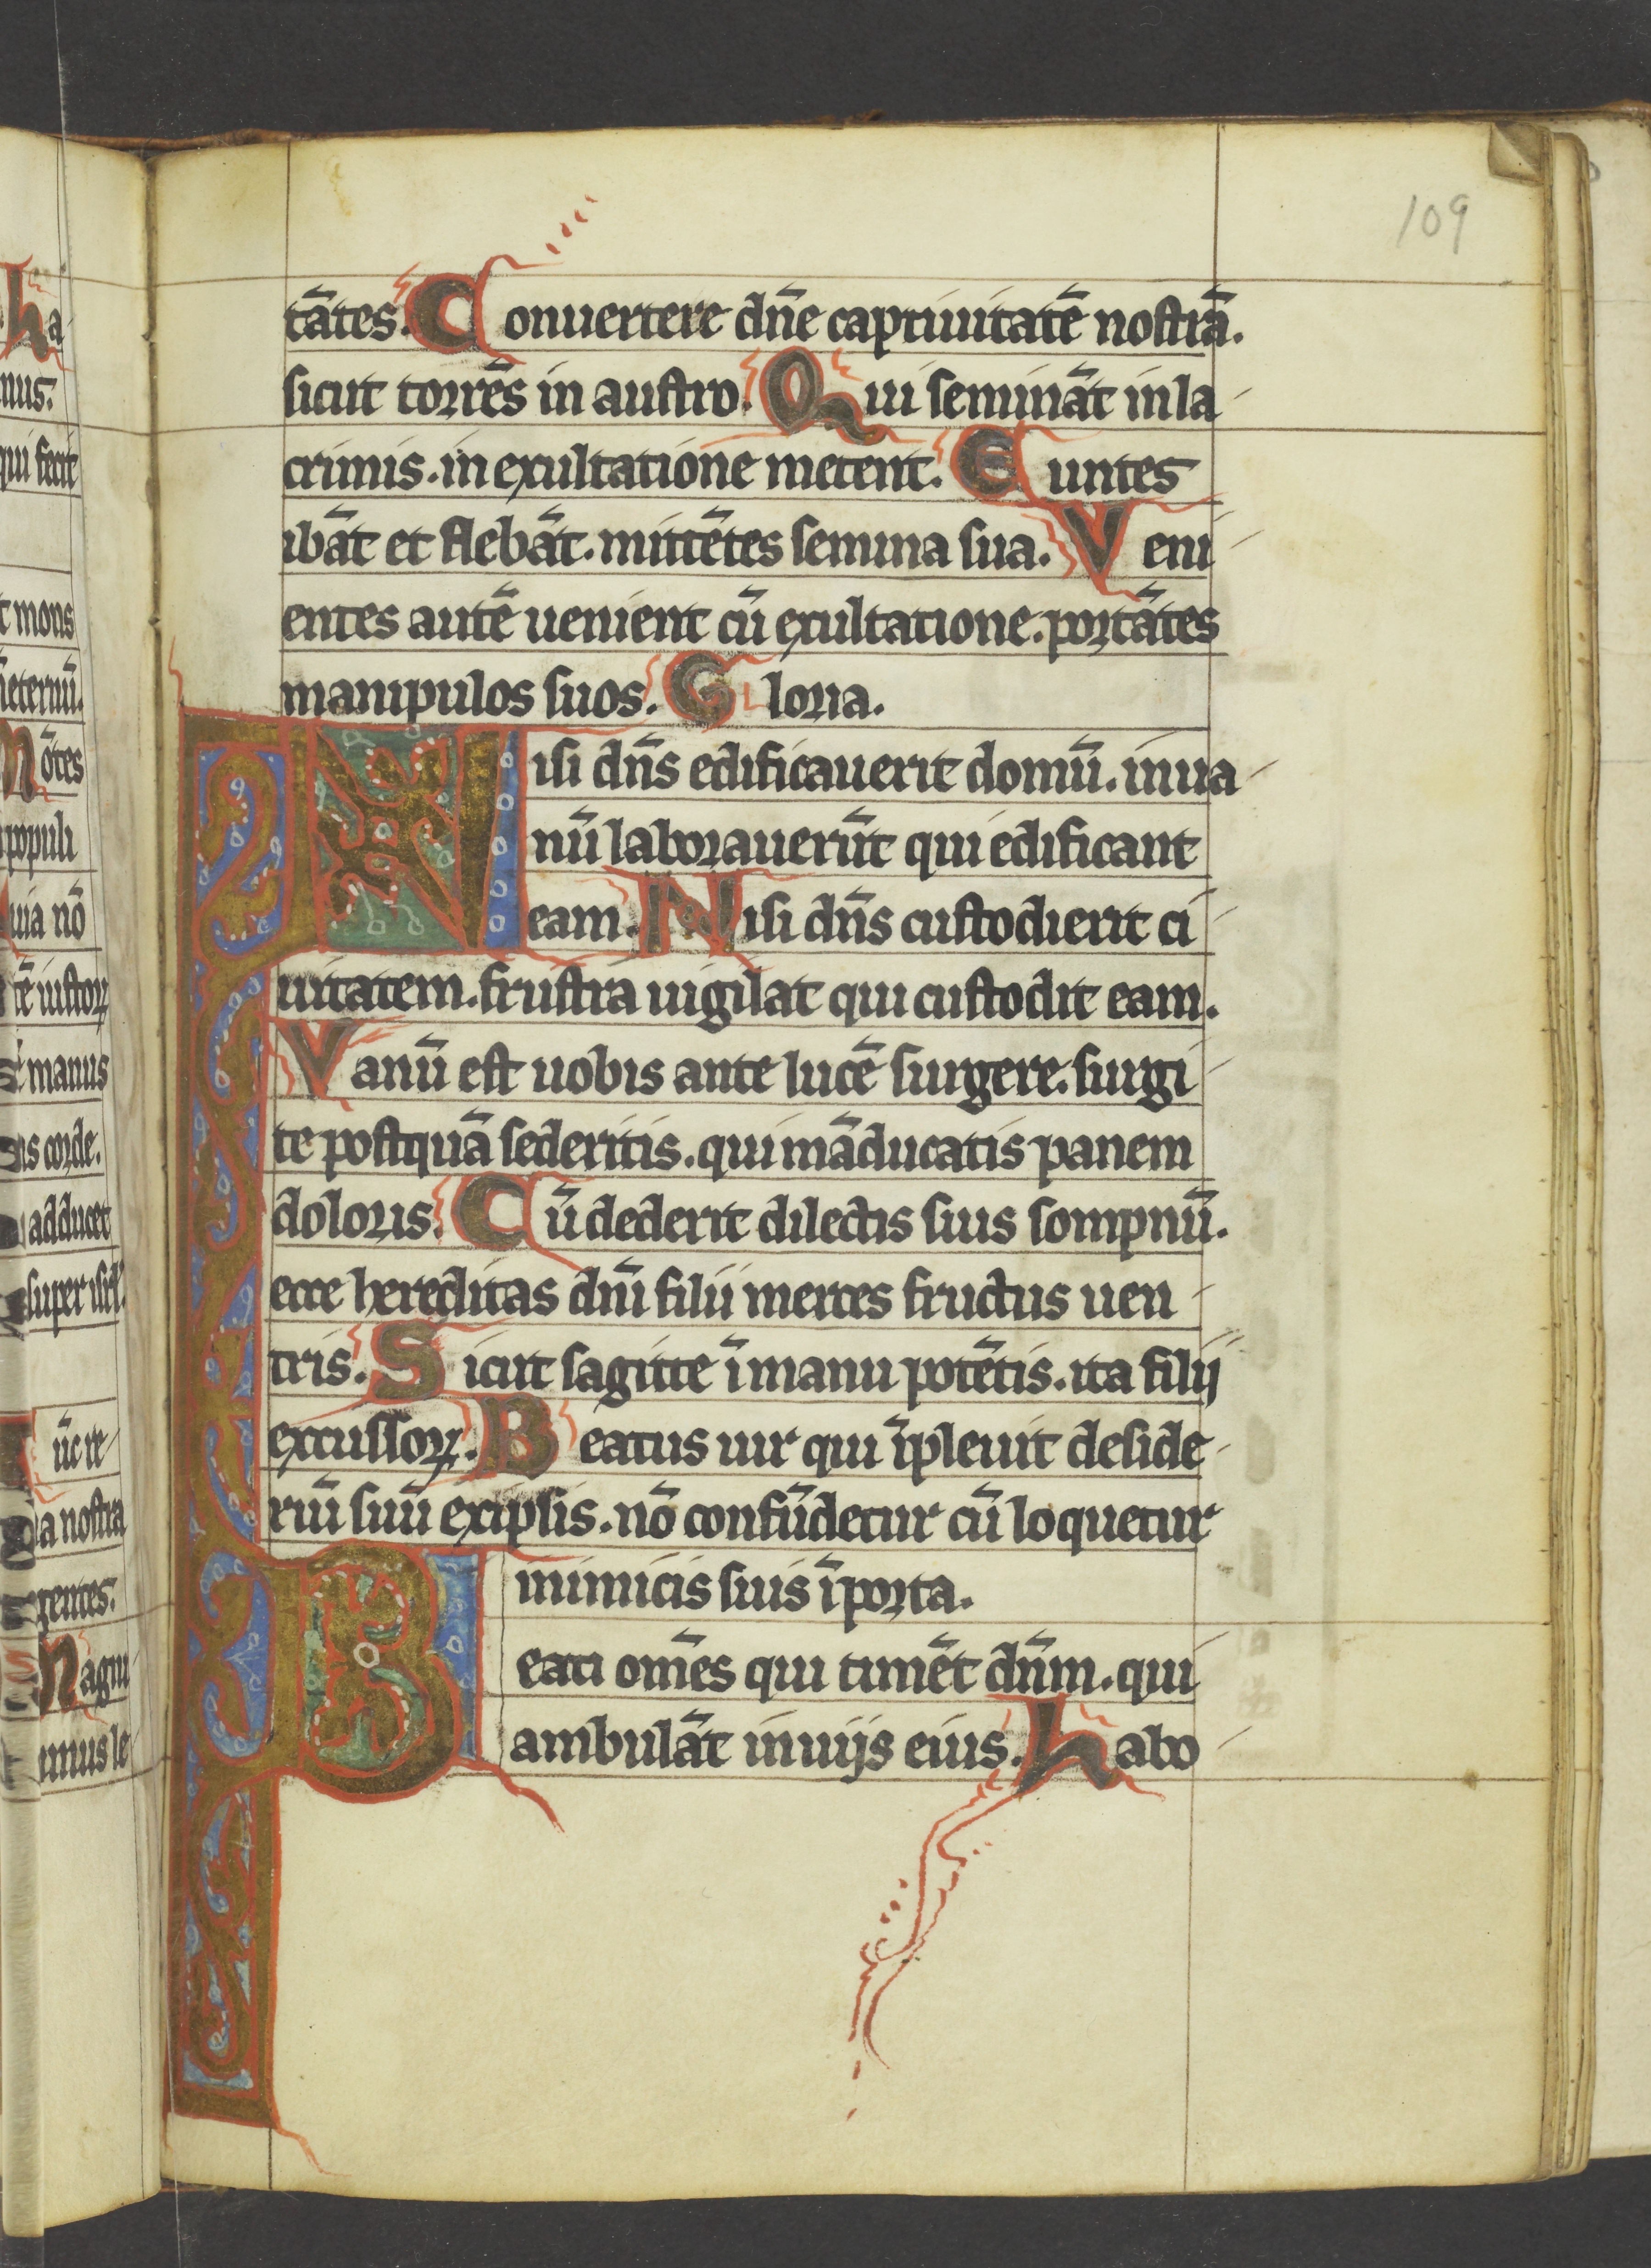 109
tātes. Conuertere dn̄e captiuitatē nostrā.
sicut torrēs in austro. Qui semināt in la
crimis. in exultatione metent. Euntes
ibāt et flebāt. mittētes semina sua. Veni
entes autē uenient cū exultatione. portātes
manipulos suos. Gloria.
Nisi dn̄s edificauerit domū. in ua
nū laborauerūt qui edificant
eam. Nisi dn̄s custodierit ci
uitatem. frustra uigilat qui custodit eam.
Vanū est uobis ante lucē surgere. surgi
te postquā sederitis. qui māducatis panem
doloris. Cū dederit dilectis suis sompnū.
ecce hereditas dn̄i filii merces fructus uen
tris. Sicut sagitte ī manu potētis. ita filij
excussoꝝ. Beatus uir qui īpleuit deside
riū suū ex ipsis. nō confūdetur cū loquetur
inimicis suis ī porta.
Beati om̄es qui timēt dn̄m. qui
ambulāt in uijs eius. Labo
ha
nus.
qui fecit
t mons
īeternū.
Mōtes
populi
uia nō
tē iustoꝝ
manus
is corde.
adducet
super isrl'.
ūc re
a nostra
rentes.
Magni
imus le